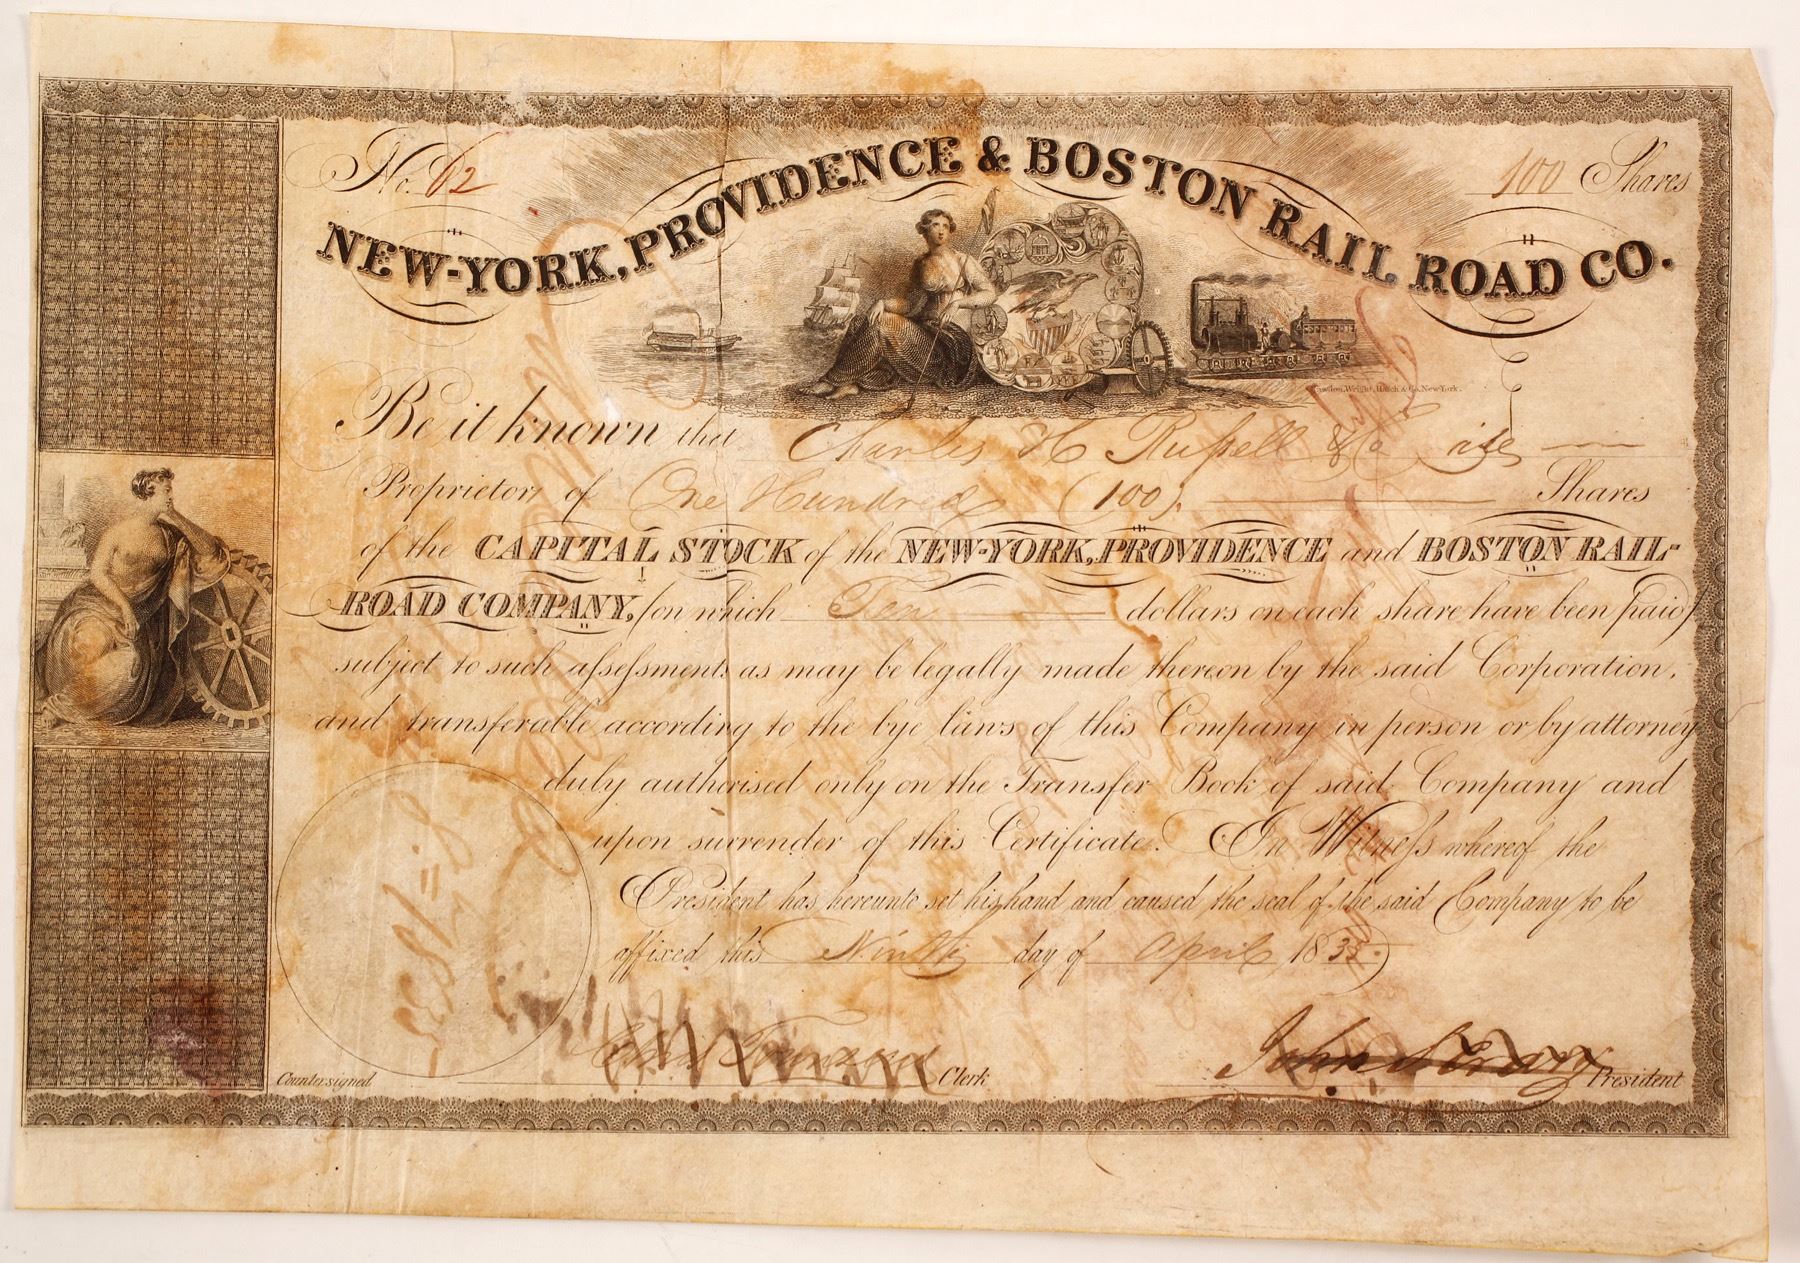 No. 62
100 Shares
NEW-YORK, PROVIDENCE & BOSTON RAIL ROAD CO.
Rawdon, Wright, Hatch & Co. New-York.
Be it known that Charles H Russell & Co is
Proprietor of One Hundred (100) Shares
of the CAPITAL STOCK of the NEW-YORK, PROVIDENCE and BOSTON RAIL-
ROAD COMPANY, (on which Ten dollars on each share have been paid)
subject to such assessments as may be legally made thereon by the said Corporation,
and transferable according to the bye laws of this Company in person or by attorney
duly authorised only on the Transfer Book of said Company and
upon surrender of this Certificate. In Witness whereof the
President has hereunto set his hand and caused the seal of the said Company to be
affixed this Ninth day of April 1835.
Countersigned Clerk
John S Crary President